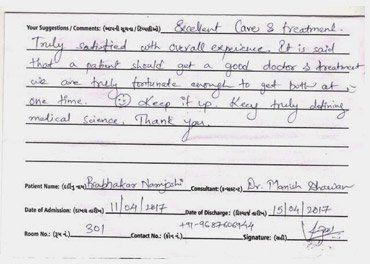 Your Suggestions / Comments: (આપની સૂચના / ટિપ્પણીઓ) Excellent Care & treatment.
Truly satisfied with overall experience. It is said
that a patient should get a good doctor & treatment
we are truly fortunate enough to get both at
one time. ☺ Keep it up. Keep truly defining
medical science. Thank you.
Patient Name: (દર્દીનું નામ) Prabhakar Namjoshi Consultant: Dr. Manish
Date of Admission: (દાખલ તારીખ) 11/04/2017 Date of Discharge: 15/04/2017
Room No.: (રૂમ નં.) 301 Contact No.: (ફોન નં.) Signature: (સહી)